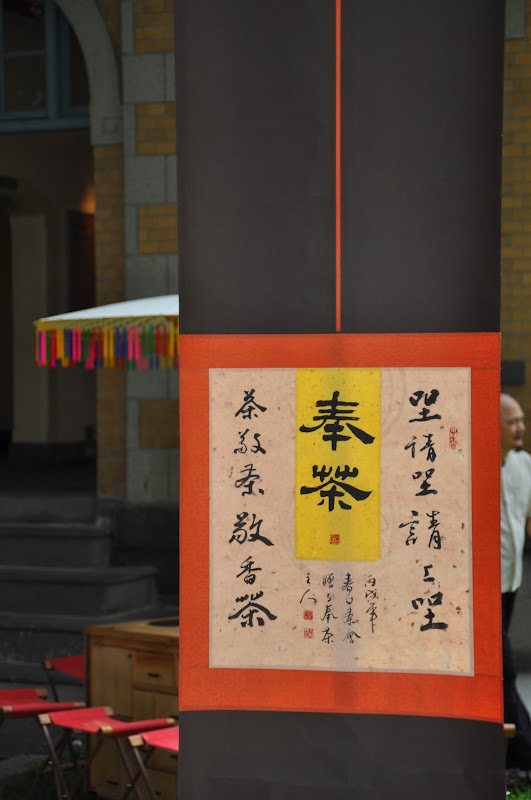 坐請坐請上坐
奉茶
丙戌年
茶會
奉茶
主人
茶敬茶敬香茶